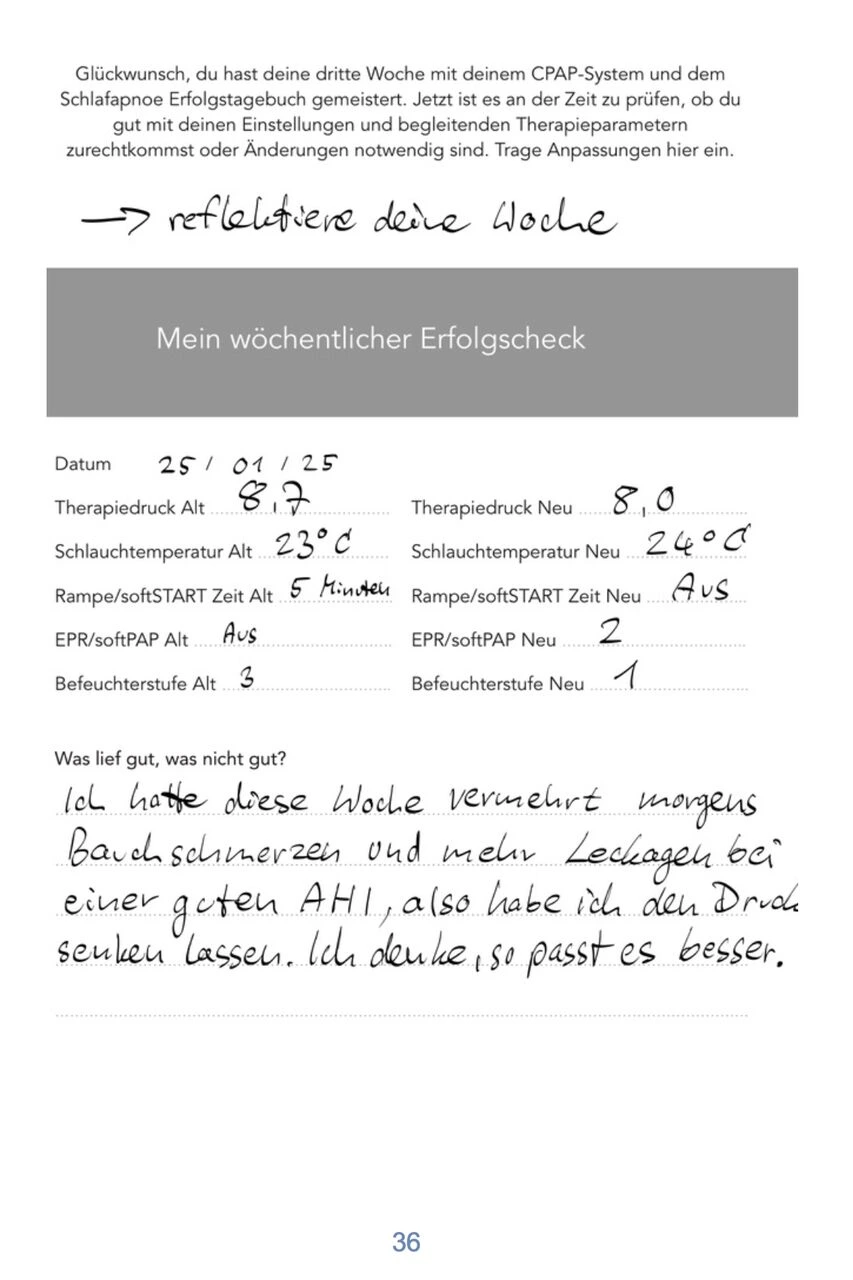 Glückwunsch, du hast deine dritte Woche mit deinem CPAP-System und dem
Schlafapnoe Erfolgstagebuch gemeistert. Jetzt ist es an der Zeit zu prüfen, ob du
gut mit deinen Einstellungen und begleitenden Therapieparametern
zurechtkommst oder Änderungen notwendig sind. Trage Anpassungen hier ein.
→ reflektiere deine Woche
Mein wöchentlicher Erfolgscheck
Datum 25 / 01 / 25
Therapiedruck Alt 8,7 Therapiedruck Neu 8,0
Schlauchtemperatur Alt 23°C Schlauchtemperatur Neu 24°C
Rampe/softSTART Zeit Alt 5 Minuten Rampe/softSTART Zeit Neu Aus
EPR/softPAP Alt Aus EPR/softPAP Neu 2
Befeuchterstufe Alt 3 Befeuchterstufe Neu 1
Was lief gut, was nicht gut?
Ich hatte diese Woche vermehrt morgens
Bauchschmerzen und mehr Leckagen bei
einer guten AHI, also habe ich den Druck
senken lassen. Ich denke, so passt es besser.
36